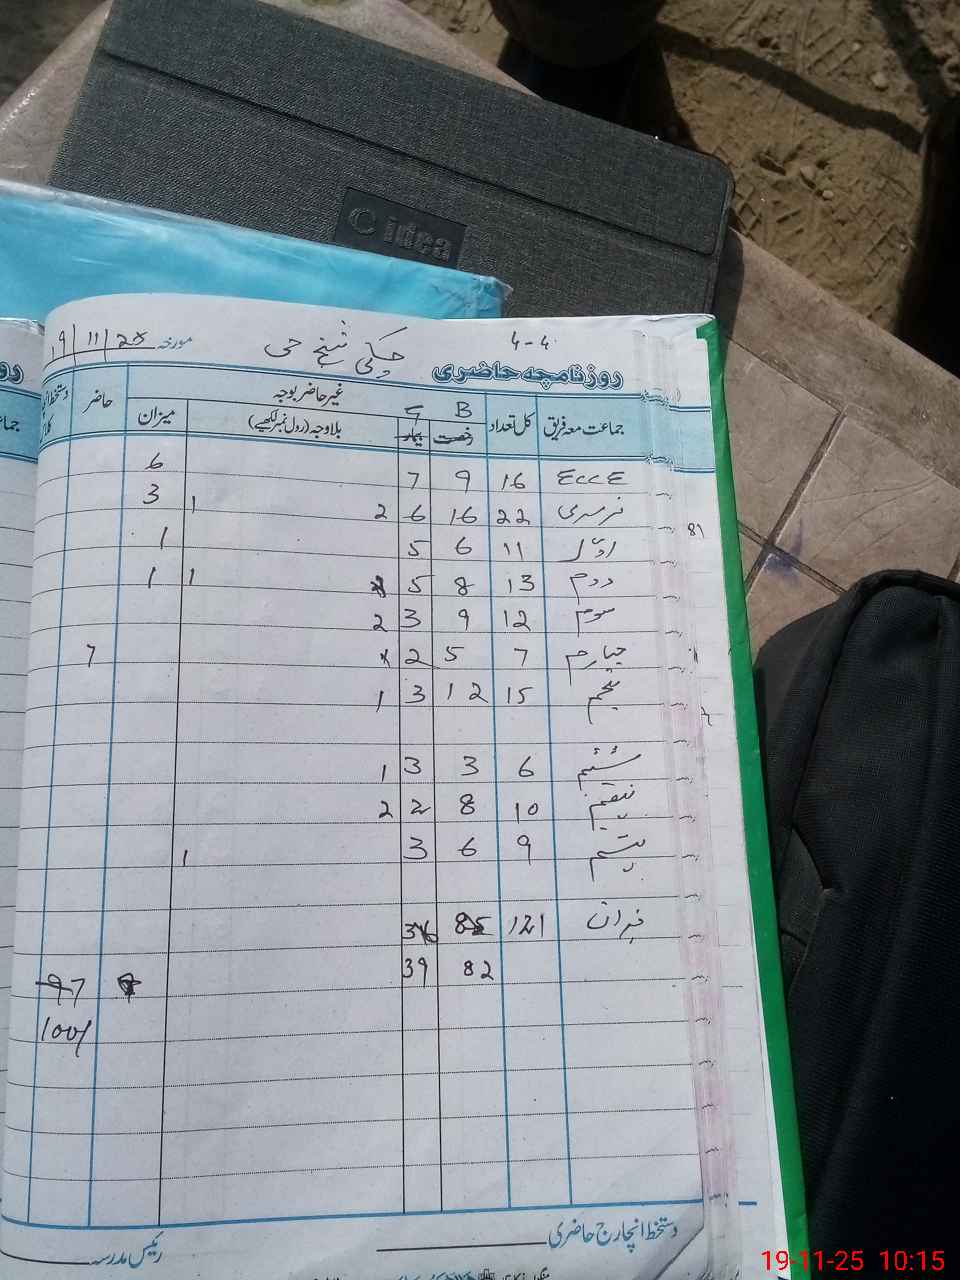 idea
4-4 چکی شیخ جی مورخہ 19/11/25
روزنامچہ حاضری
جماعت معہ فریق کل تعداد B G غیر حاضر بوجہ حاضر
رخصت بیمار بلاوجہ (رول نمبر لکھیے) میزان
ECCE 16 9 7 6
نرسری 22 16 6 2 1 3
81
اول 11 6 5 1
دوم 13 8 5 1 1
سوم 12 9 3 2
چہارم 7 5 2 7
پنجم 15 12 3 1
ششم 6 3 3 1
ہفتم 10 8 2 2
ہشتم 9 6 3 1
میزان 121
82 39
97
100/
دستخط انچارج حاضری رئیس مدرسہ
19-11-25 10:15